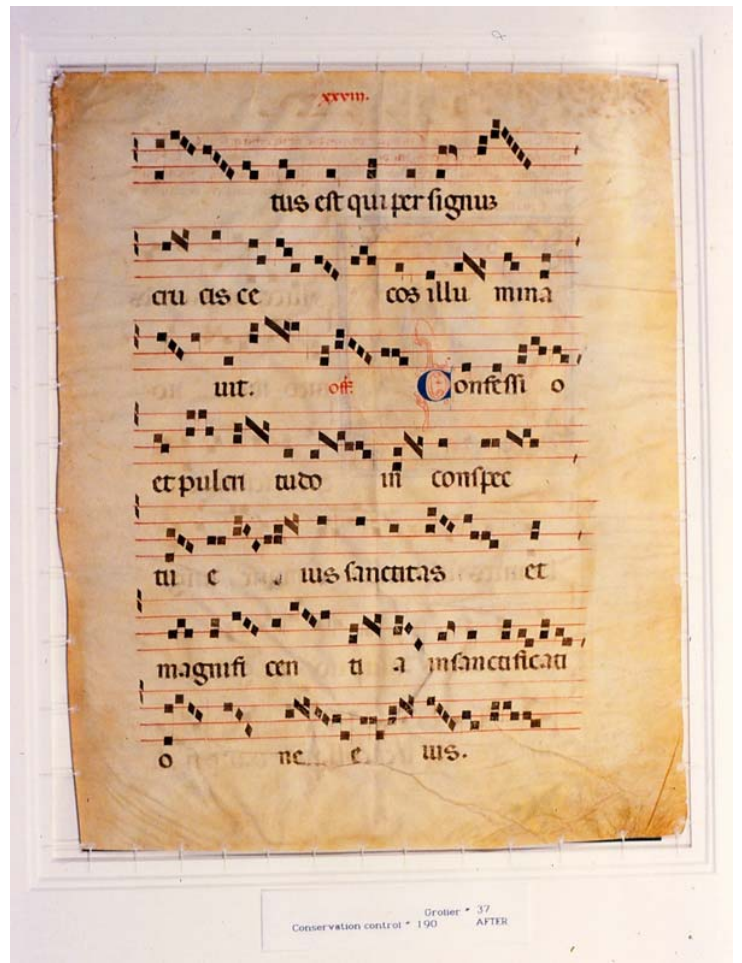 xxviii.
tus est qui per signuz
cru cis ce cos illu mina
uit. off. Confessi o
et pulcri tudo in conspec
tu e ius sanctitas et
magnifi cen ti a in sanctificati
o ne e ius.
Grolier # 37
Conservation control # 190 AFTER